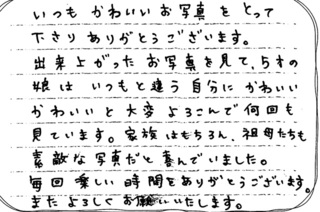 いつも かわいい お写真 を とって
下さり ありがとうございます。
出来上がった お写真 を見て、5才の
娘は いつもと違う 自分に かわいい
かわいいと 大変 よろこんで 何回も
見ています。家族はもちろん、祖母たちも
素敵な写真だと 喜んでいました。
毎回 楽しい 時間を ありがとうございます。
また よろしく お願いいたします。